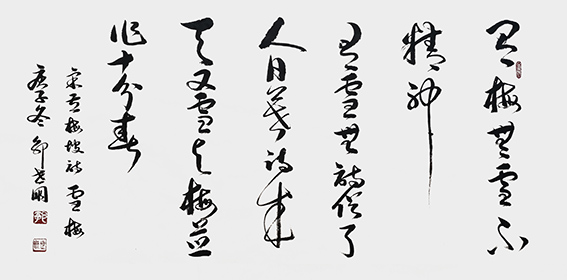 有梅無雪不
精神
有雪無詩俗了
人日暮诗成
天又雪与梅並
作十分春
宋卢梅坡诗 雪梅
庚子冬